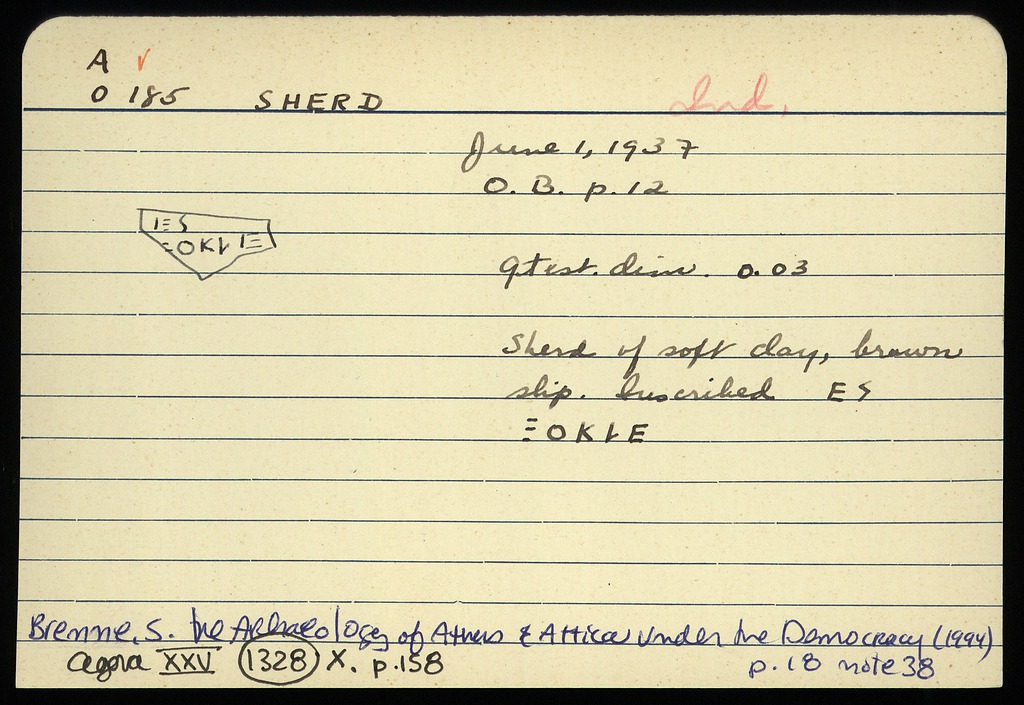 A ✓
O 185 SHERD Ind.
June 1, 1937
O.B. p.12
IES
ΞOKLE
gtest. dim. 0.03
Sherd of soft clay, brown
slip. Inscribed ES
ΞOKLE
Brenne, S. The Archaeology of Athens & Attica under the Democracy (1994)
p.18 note 38
Agora XXV 1328 X. p.158